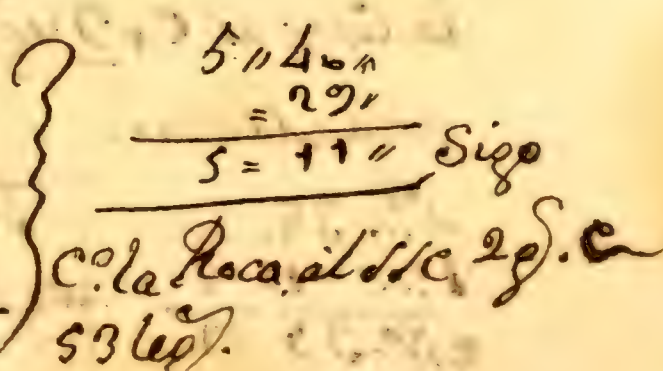 5 〃 40 〃
= 29 〃
5 = 11 〃 Sigo
Co. la Roca al SSE 2g). e
53 leg).